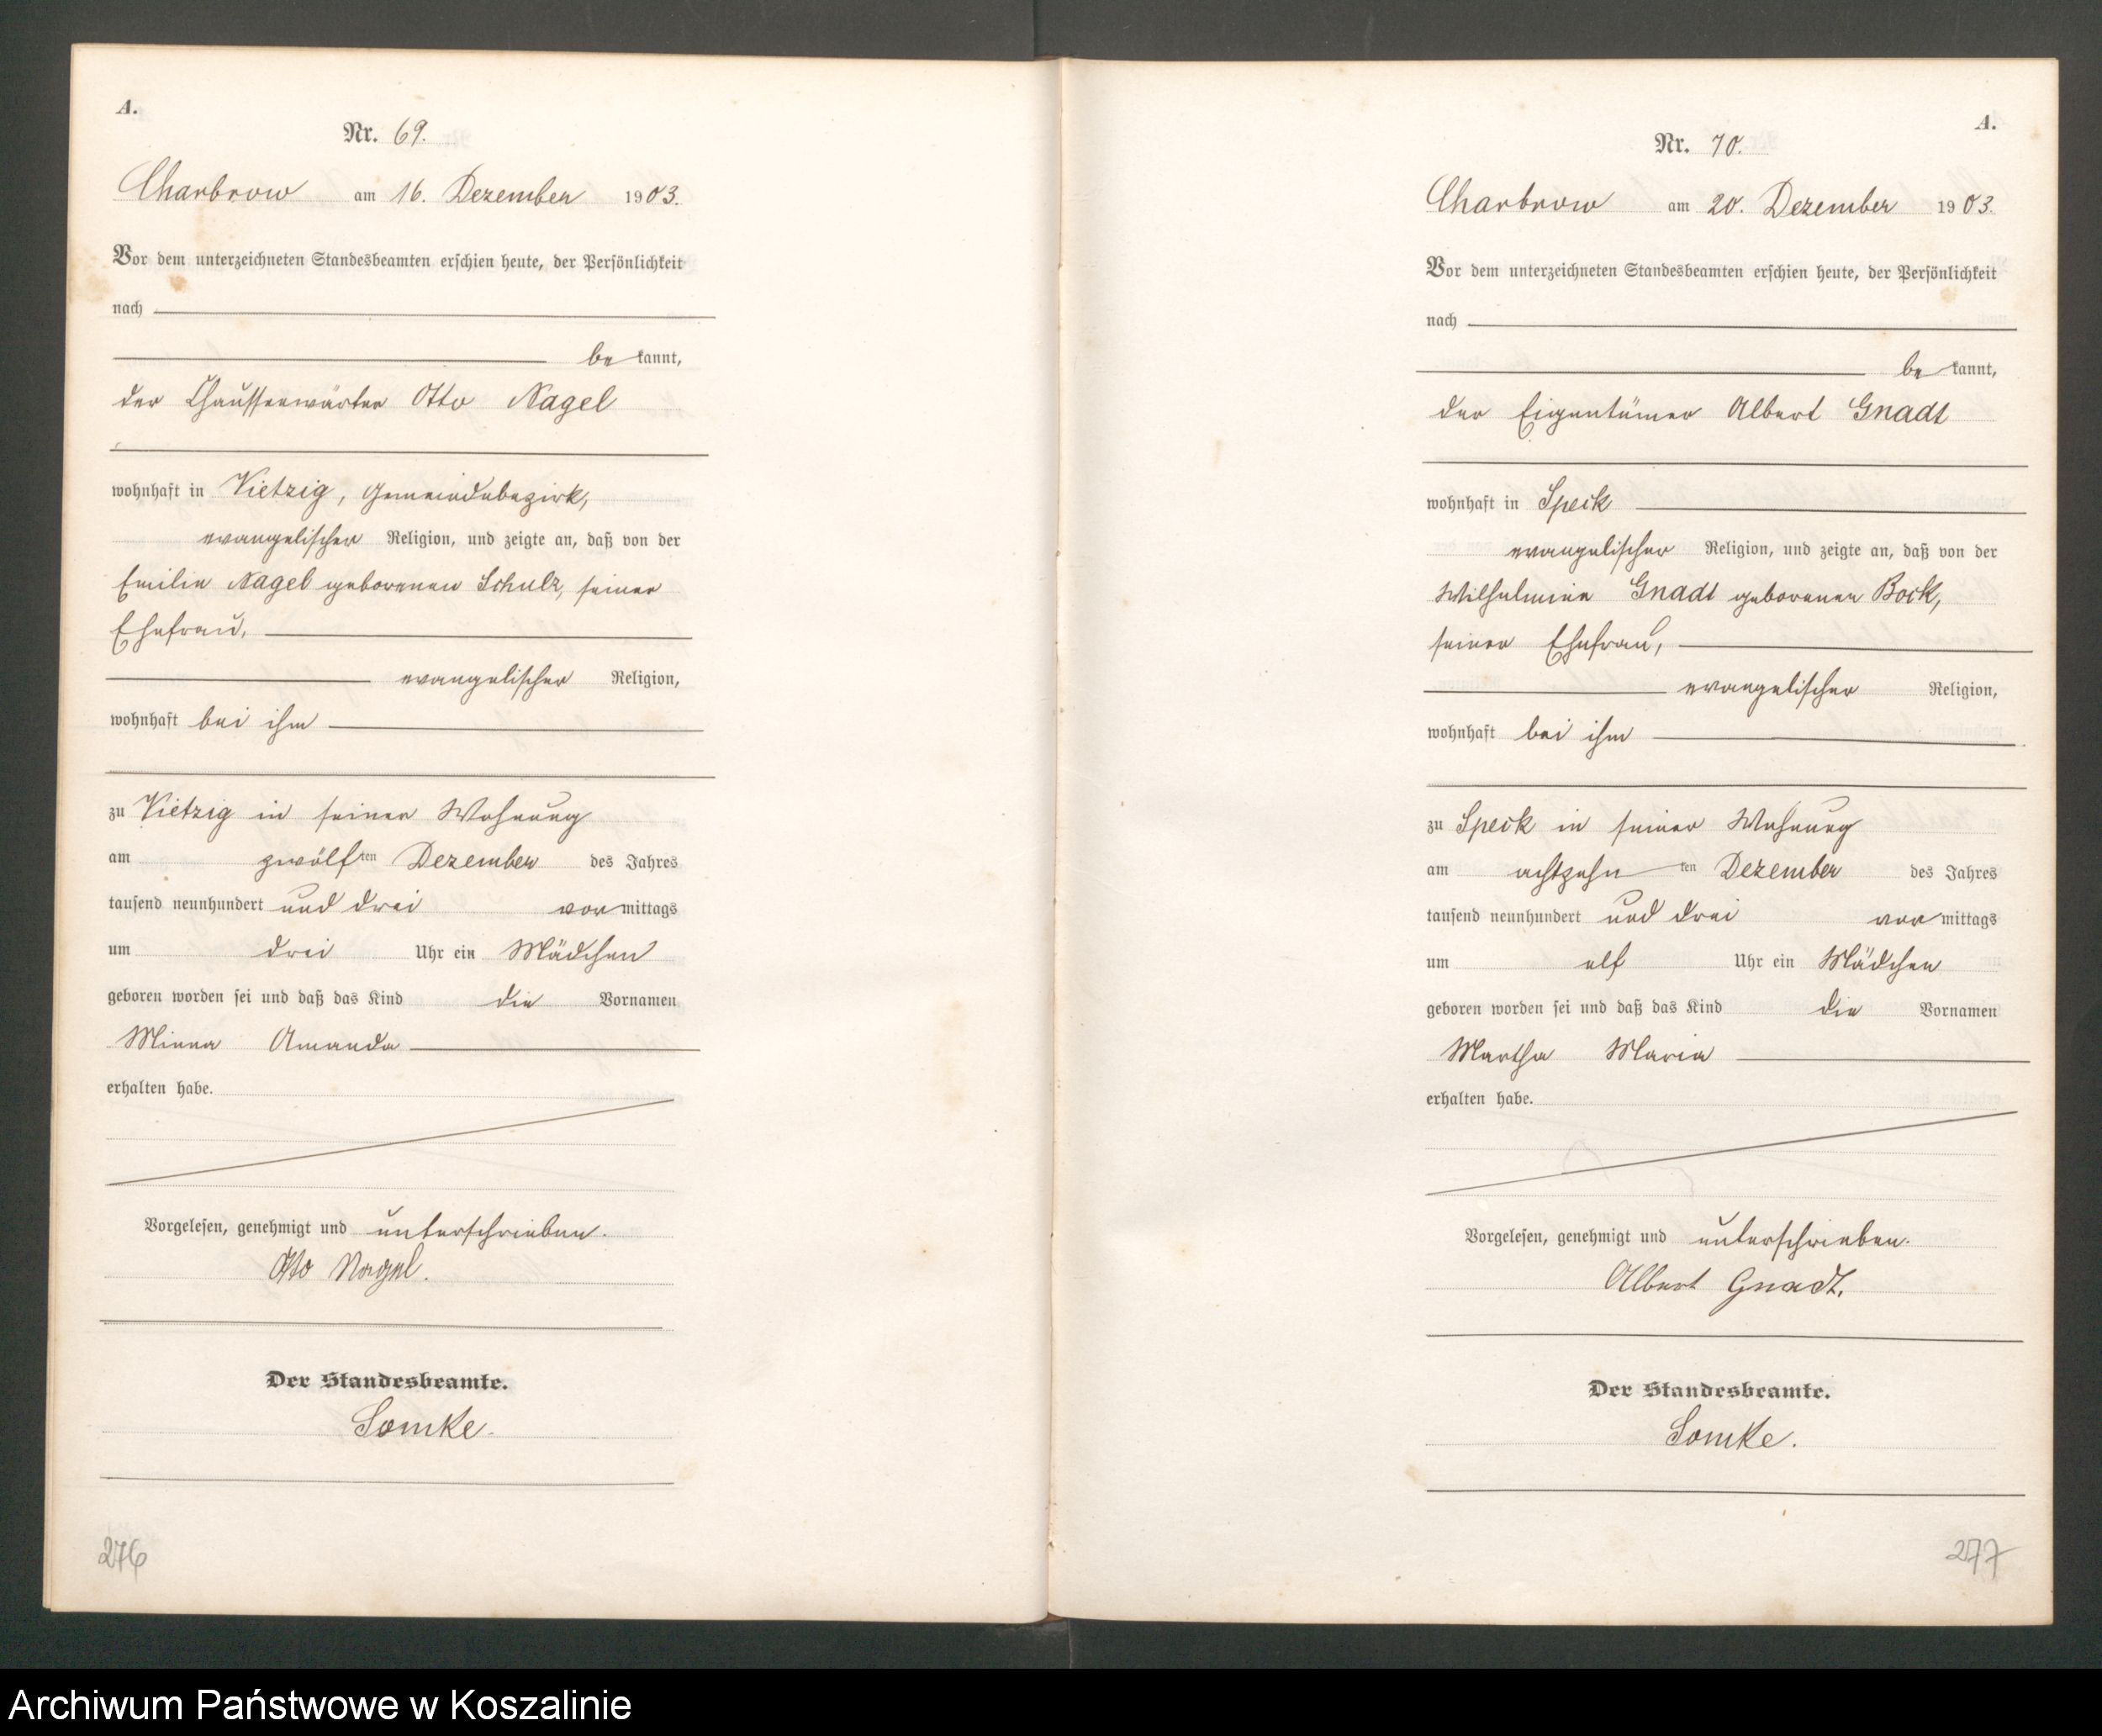 A.
Nr. 69.
Charbrow am 16. Dezember 1903.
Vor dem unterzeichneten Standesbeamten erschien heute, der Persönlichkeit
nach
be kannt,
der Chausseewärter Otto Nagel
wohnhaft in Vietzig, Gemeindebezirk,
evangelischer Religion, und zeigte an, daß von der
Emilie Nagel geborenen Schulz, seiner
Ehefrau,
evangelischer Religion,
wohnhaft bei ihm
zu Vietzig in seiner Wohnung
am zwölften Dezember des Jahres
tausend neunhundert und drei vor mittags
um drei Uhr ein Mädchen
geboren worden sei und daß das Kind die Vornamen
Minna Amanda
erhalten habe.
Vorgelesen, genehmigt und unterschrieben.
Otto Nagel.
Der Standesbeamte.
Somke.
276
A.
Nr. 70.
Charbrow am 20. Dezember 1903.
Vor dem unterzeichneten Standesbeamten erschien heute, der Persönlichkeit
nach
be kannt,
der Eigentümer Albert Gnadt
wohnhaft in Speck
evangelischer Religion, und zeigte an, daß von der
Wilhelmine Gnadt geborenen Bock,
seiner Ehefrau,
evangelischer Religion,
wohnhaft bei ihm
zu Speck in seiner Wohnung
am achtzehn ten Dezember des Jahres
tausend neunhundert und drei vor mittags
um elf Uhr ein Mädchen
geboren worden sei und daß das Kind die Vornamen
Martha Maria
erhalten habe.
Vorgelesen, genehmigt und unterschrieben.
Albert Gnadt.
Der Standesbeamte.
Somke.
277
Archiwum Państwowe w Koszalinie